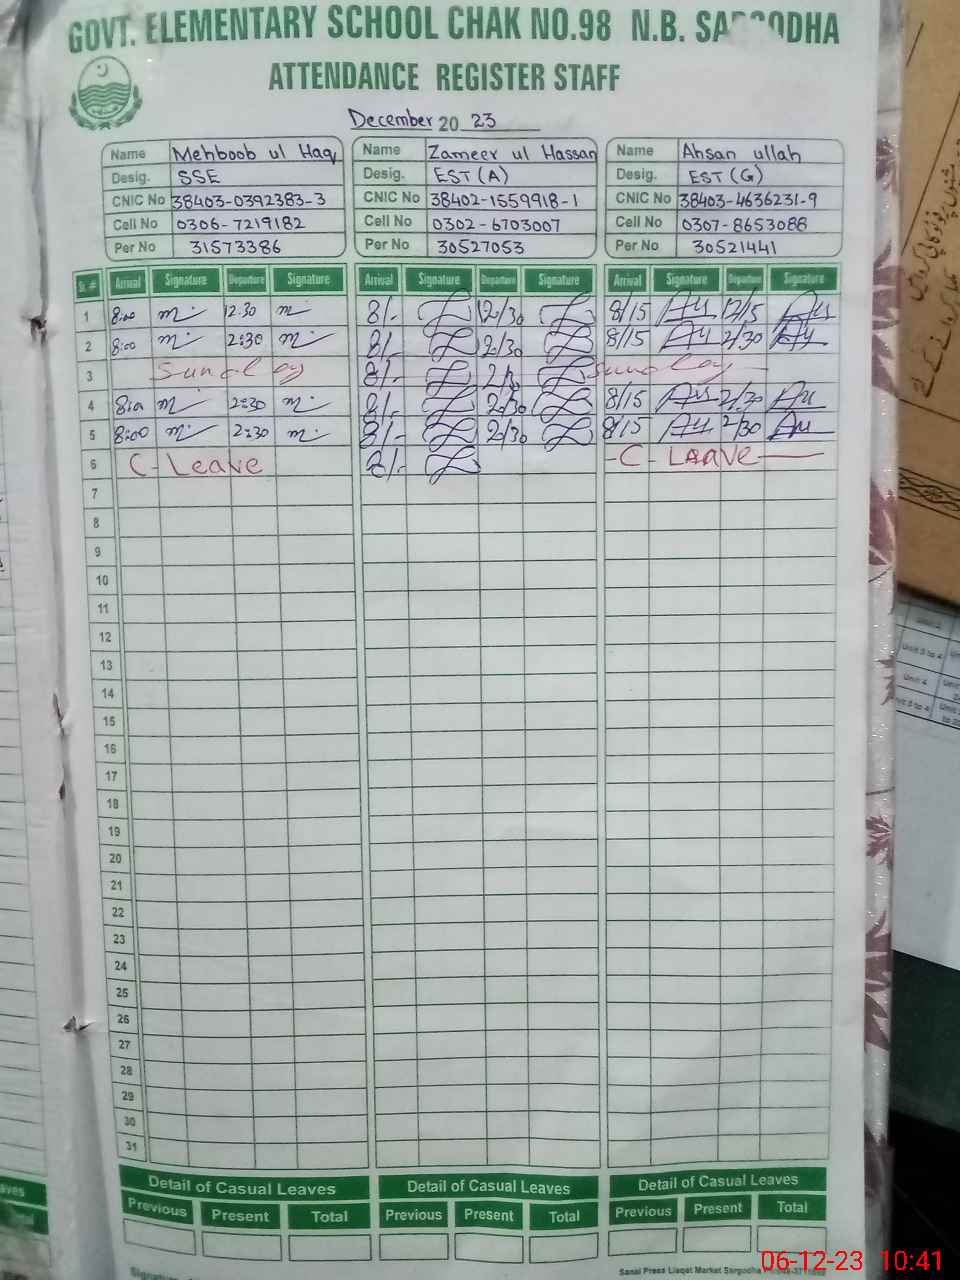 GOVT. ELEMENTARY SCHOOL CHAK NO.98 N.B. SARGODHA
ATTENDANCE REGISTER STAFF
December 20 23
Name Mehboob ul Haq Name Zameer ul Hassan Name Ahsan ullah
Desig. SSE Desig. EST (A) Desig. EST (G)
CNIC No 38403-0392383-3 CNIC No 38402-1559918-1 CNIC No 38403-4636231-9
Cell No 0306-7219182 Cell No 0302-6703007 Cell No 0307-8653088
Per No 31573386 Per No 30527053 Per No 30521441
Sr. # Arrival Signature Departure Signature Arrival Signature Departure Signature Arrival Signature Departure Signature
1 8:00 12:30 8/- 12/30 8/15 12/15
2 8:00 2:30 8/- 2/30 8/15 2/30
3 Sunday 8/- Sunday
4 8:00 2:30 8/- 2/30 8/15 2/30
5 8:00 2:30 8/- 2/30 8/15 2/30
6 C-Leave 8/- -C-LEAVE-
7
8
9
10
11
12
13
14
15
16
17
18
19
20
21
22
23
24
25
26
27
28
29
30
31
Detail of Casual Leaves Detail of Casual Leaves Detail of Casual Leaves
Previous Present Total Previous Present Total Previous Present Total
Sanai Press Liaqat Market Sargodha
06-12-23 10:41